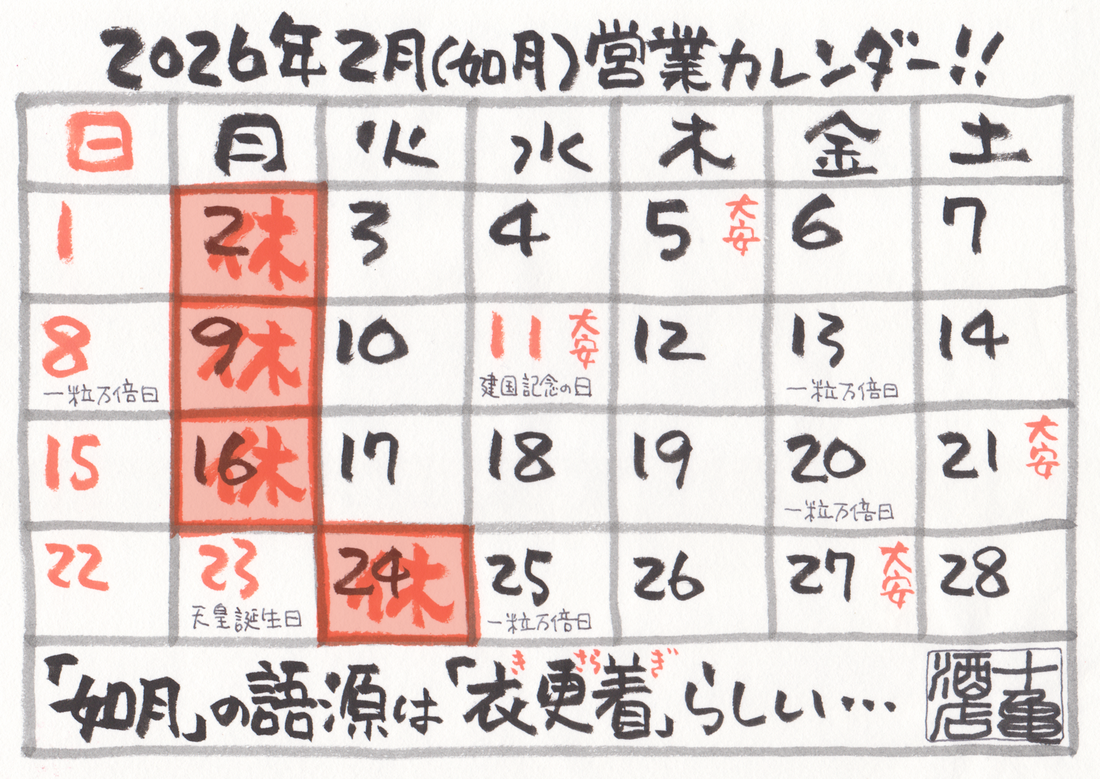 2026年2月(如月)営業カレンダー!!
日 月 火 水 木 金 土
1 2 休 3 4 5 大安 6 7
8 9 休 10 11 大安 12 13 14
一粒万倍日 建国記念の日 一粒万倍日
15 16 休 17 18 19 20 21 大安
一粒万倍日
22 23 24 休 25 26 27 大安 28
天皇誕生日 一粒万倍日
き さら ぎ
「如月」の語源は「衣更着」らしい…
十亀酒店